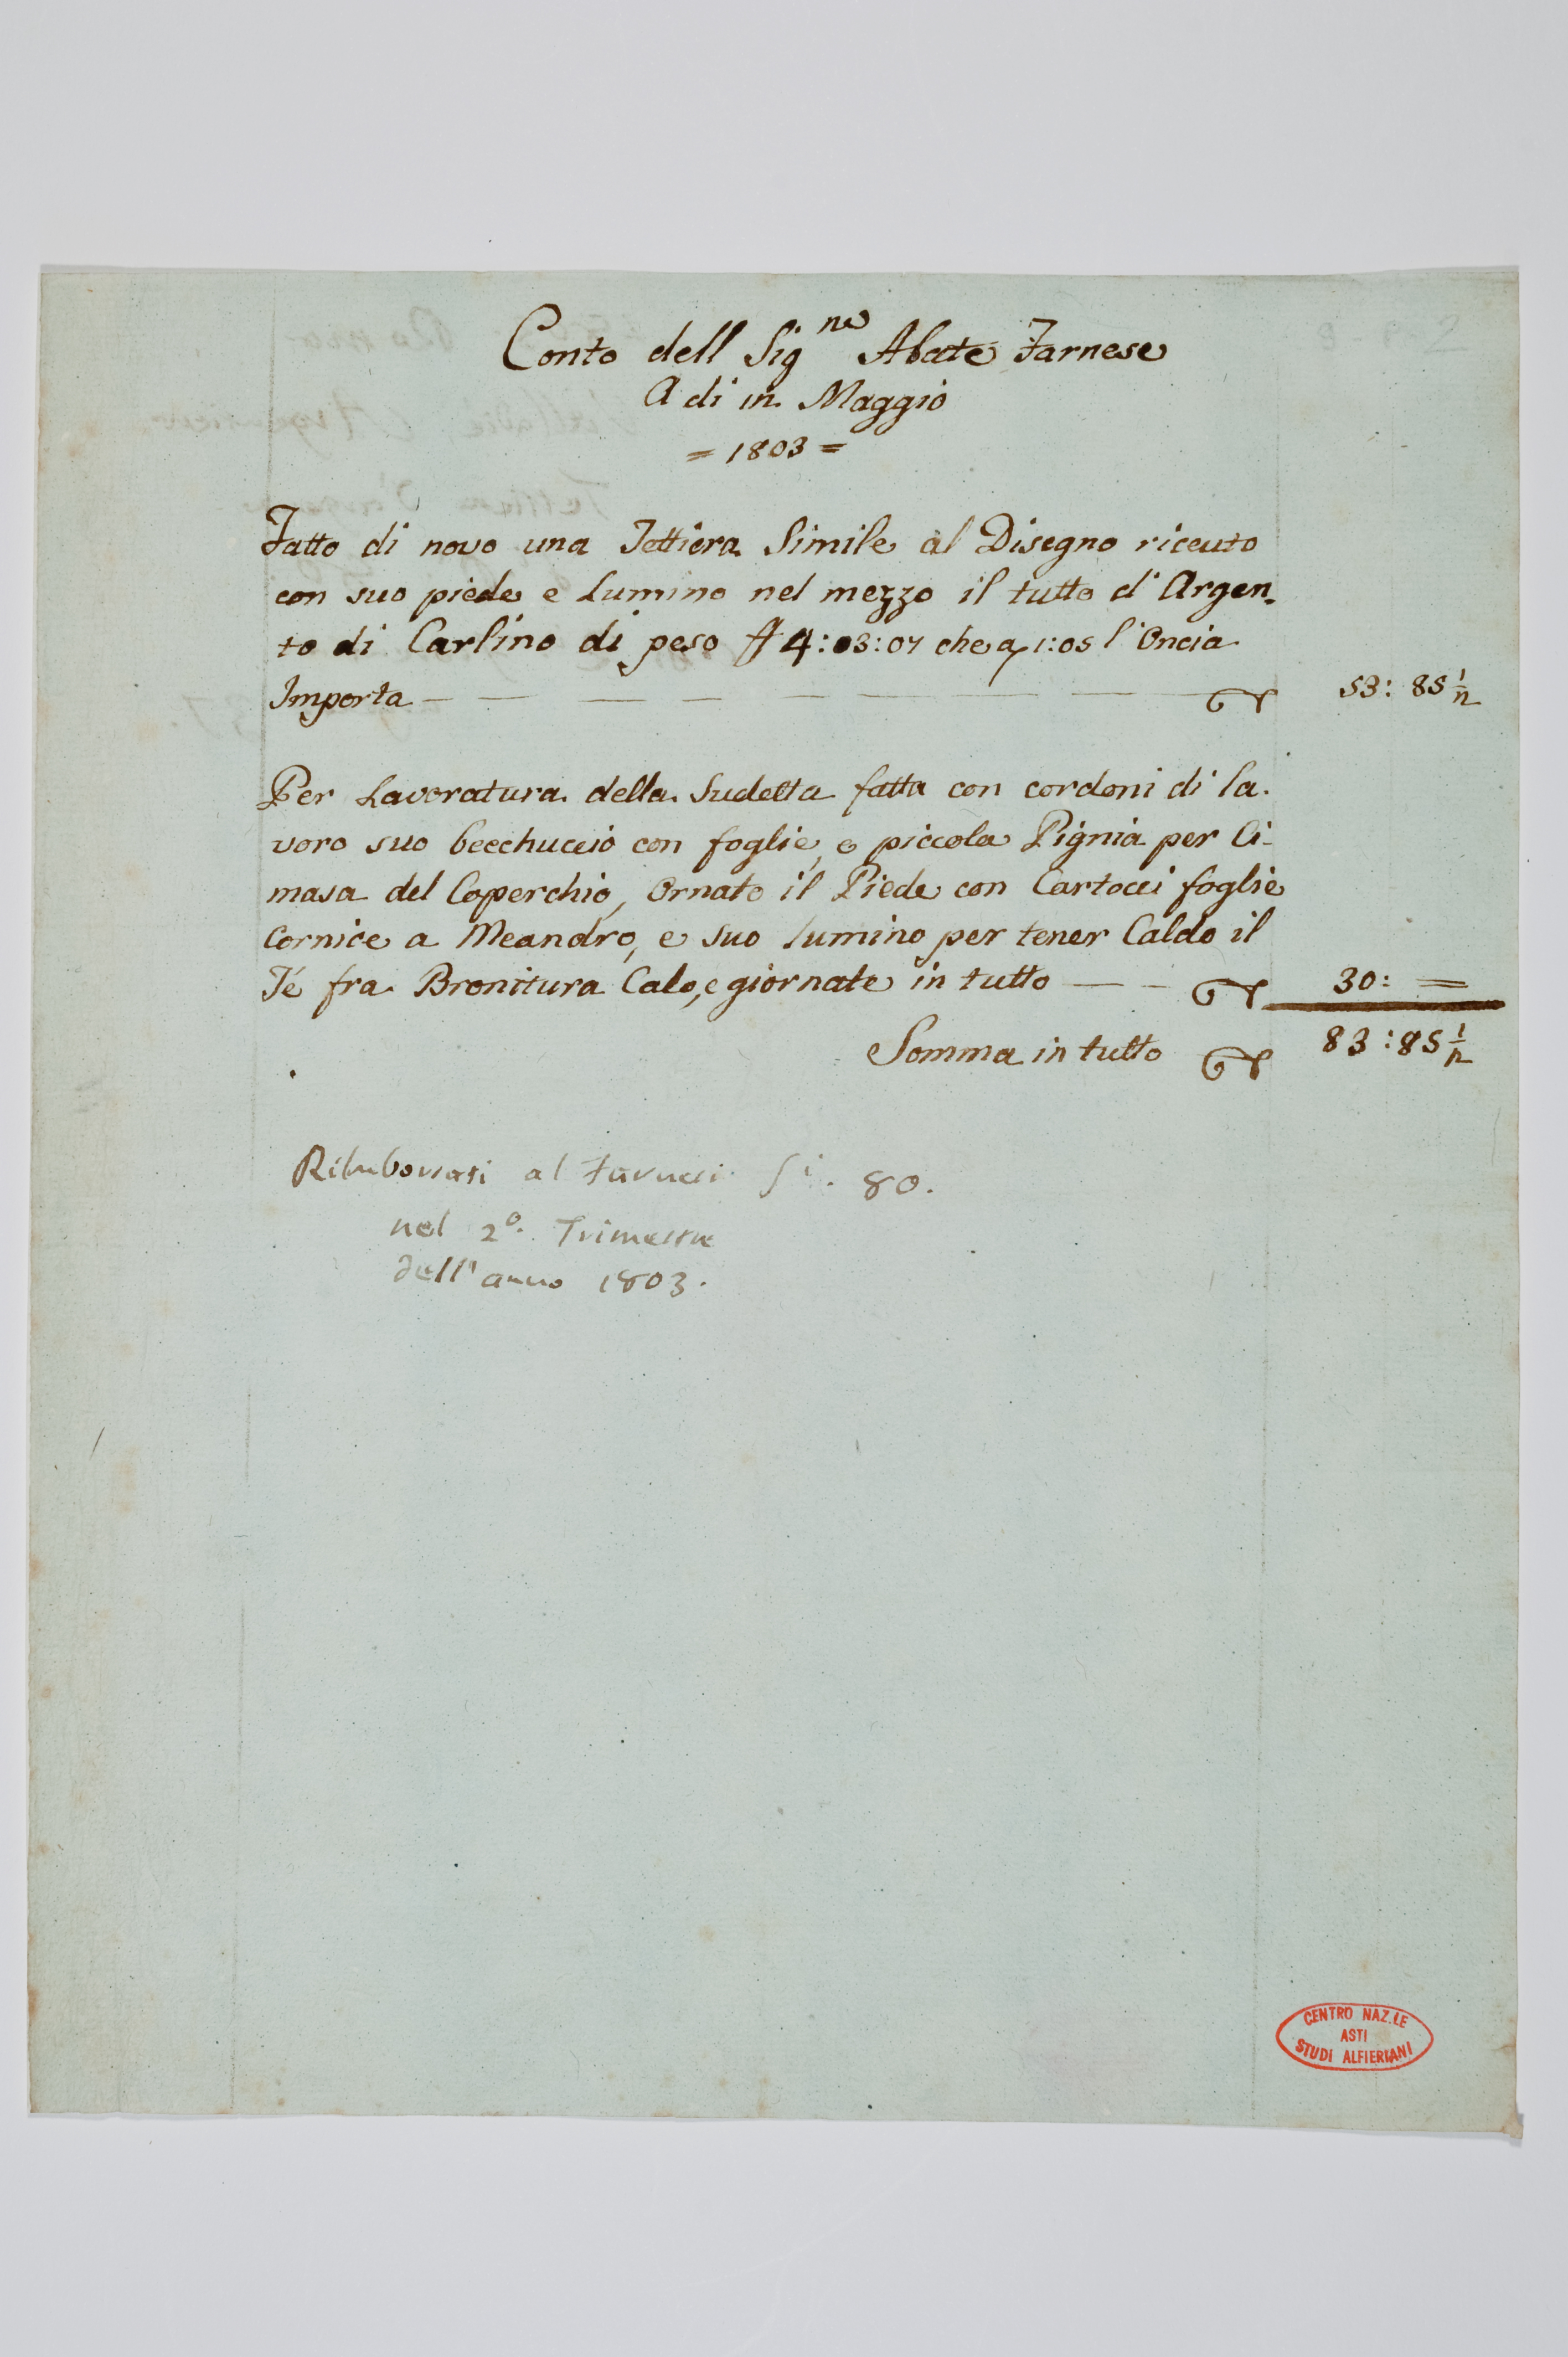 Conto dell Sig.ne Abate Farnese
A di in Maggio
= 1803 =
Fatto di novo una Tettiera Simile al Disegno riceuto
con suo piede e Lumino nel mezzo il tutto d'Argen.
to di Carlino di peso ℔ 4:03:07 che a 1:05 l'Oncia
Importa — — — — — — — — 53: 85 1/2
Per Lavoratura della Sudetta fatta con cordoni di la.
voro suo becchuccio con foglie, e piccola Pignia per Ci-
masa del Coperchio, Ornato il Piede con Cartocci foglie
Cornice a Meandro, e suo lumino per tener Caldo il
Té fra Bronitura Calo, e giornate in tutto — — 30: =
Somma in tutto 83:85 1/2
Rimborsati al 80.
nel 2º. Trimestre
dell'anno 1803.
CENTRO NAZ.LE
ASTI
STUDI ALFIERIANI